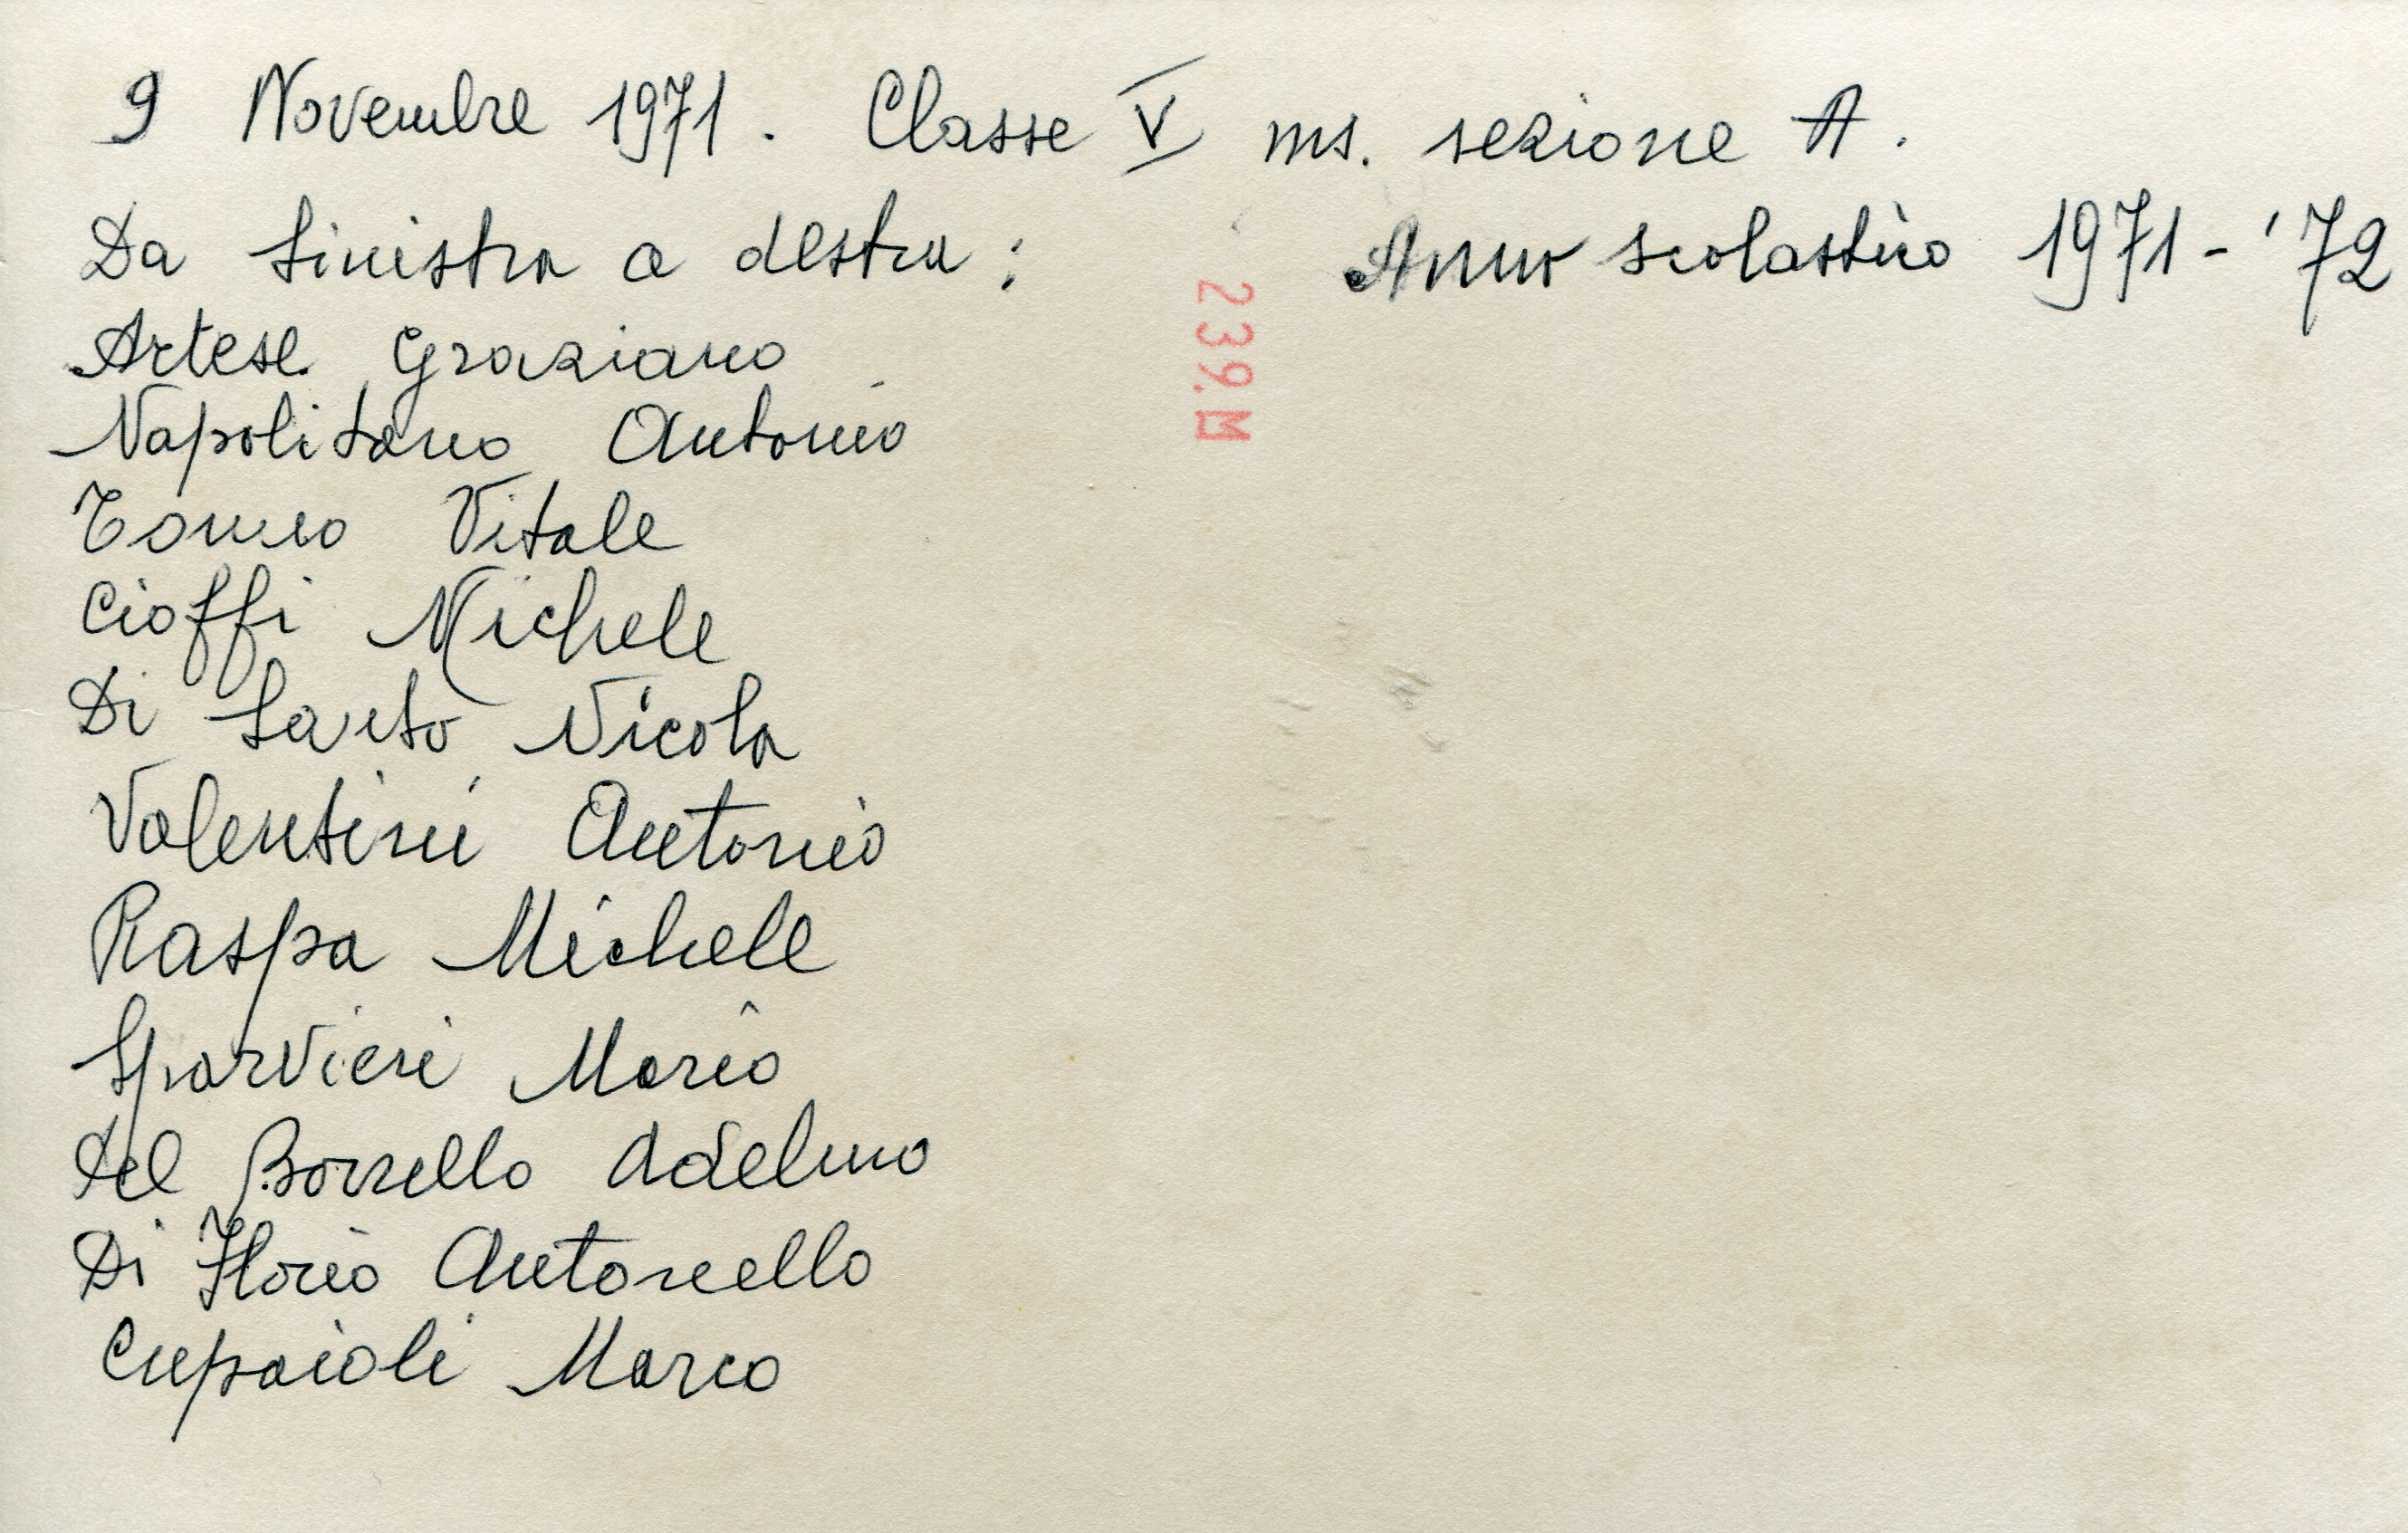 9 Novembre 1971. Classe V ms. sezione A.
Da sinistra a destra: Anno scolastico 1971-'72
239.M
Artese Graziano
Napolitano Antonio
Tomeo Vitale
Cioffi Michele
Di Santo Nicola
Valentini Antonio
Raspa Michele
Sparvieri Mario
Del Borrello Adelmo
Di Florio Antonello
Cupaioli Marco